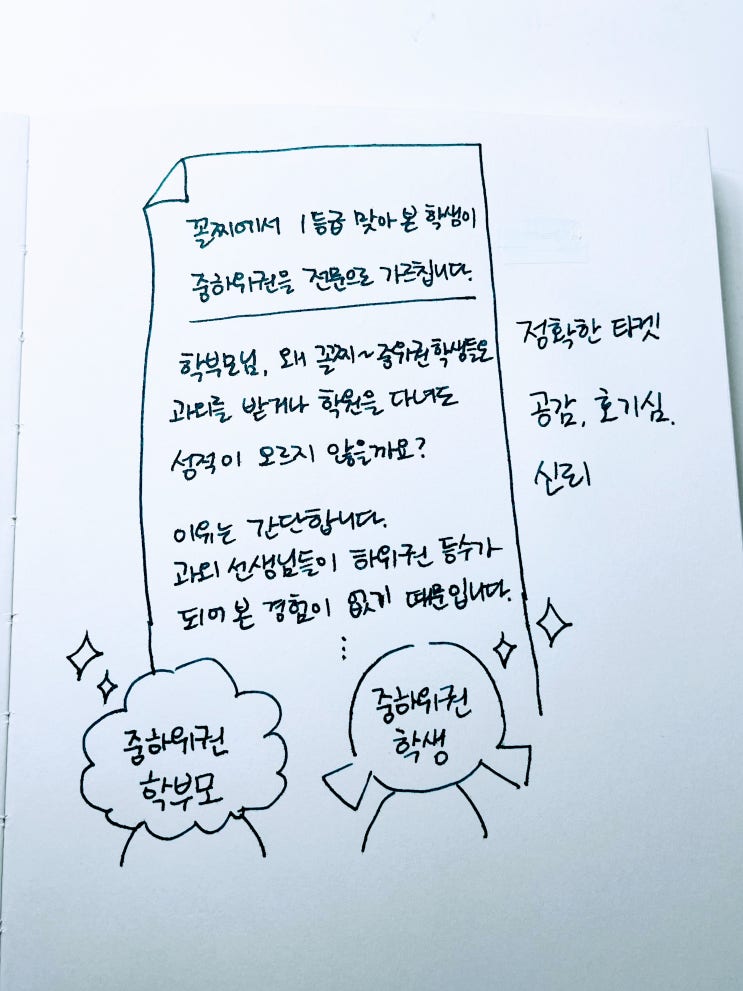 꼴찌에서 1등급 맞아 본 학생이
중하위권을 전문으로 가르칩니다.
학부모님, 왜 꼴찌~중위권 학생들은
과외를 받거나 학원을 다녀도
성적이 오르지 않을까요?
이유는 간단합니다.
과외 선생님들이 하위권 등수가
되어 본 경험이 없기 때문입니다.
⋮
정확한 타켓
공감, 호기심.
신뢰
중하위권
학부모
중하위권
학생